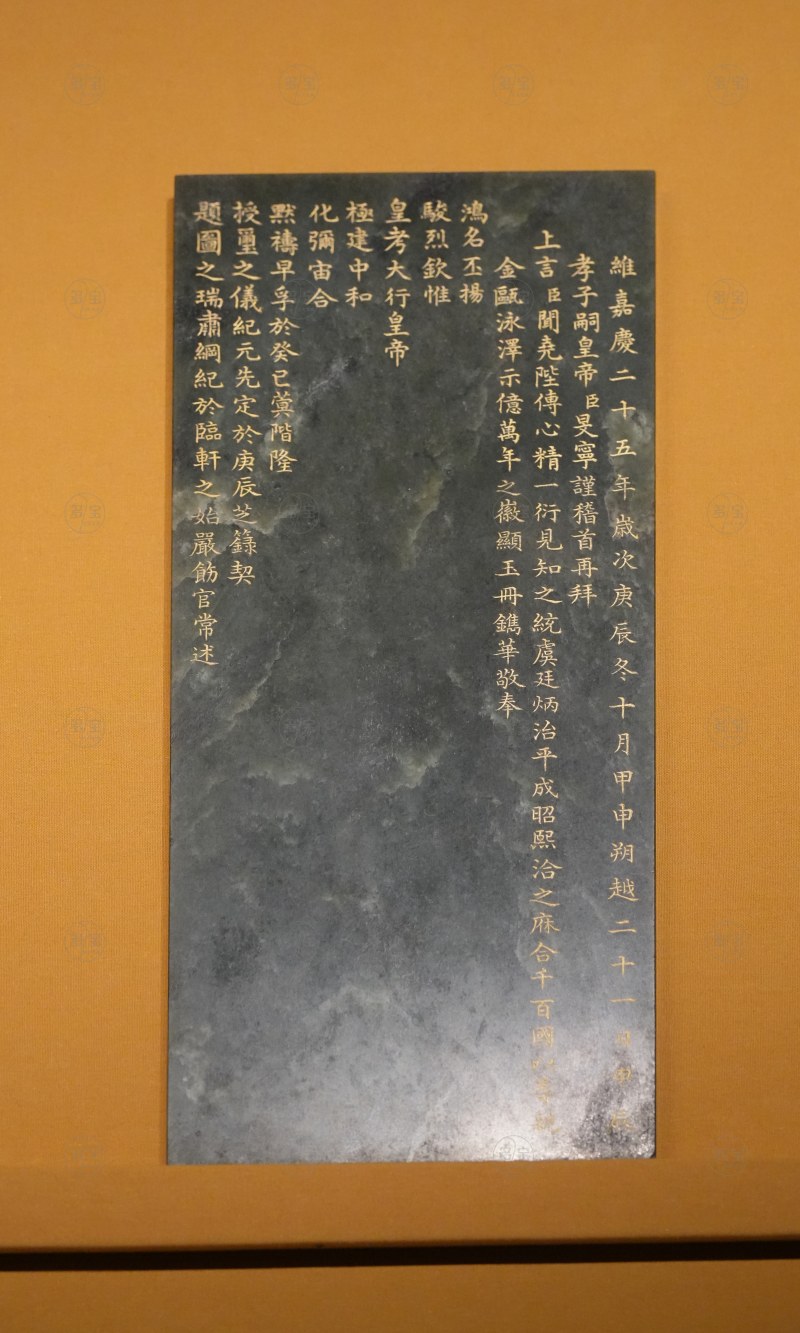 維嘉慶二十五年歲次庚辰冬十月甲申朔越二十一日甲辰
孝子嗣皇帝臣旻寧謹稽首再拜
上言臣聞堯陛傳心精一衍見知之統虞廷炳治平成昭熙洽之庥合千百國
金甌泳澤示億萬年之徽顯玉冊鐫華敬奉
鴻名丕揚
駿烈欽惟
皇考大行皇帝
極建中和
化彌宙合
默禱早孚於癸巳蓂階隆
授璽之儀紀元先定於庚辰芝籙契
題圖之瑞肅綱紀於臨軒之始嚴飭官常述